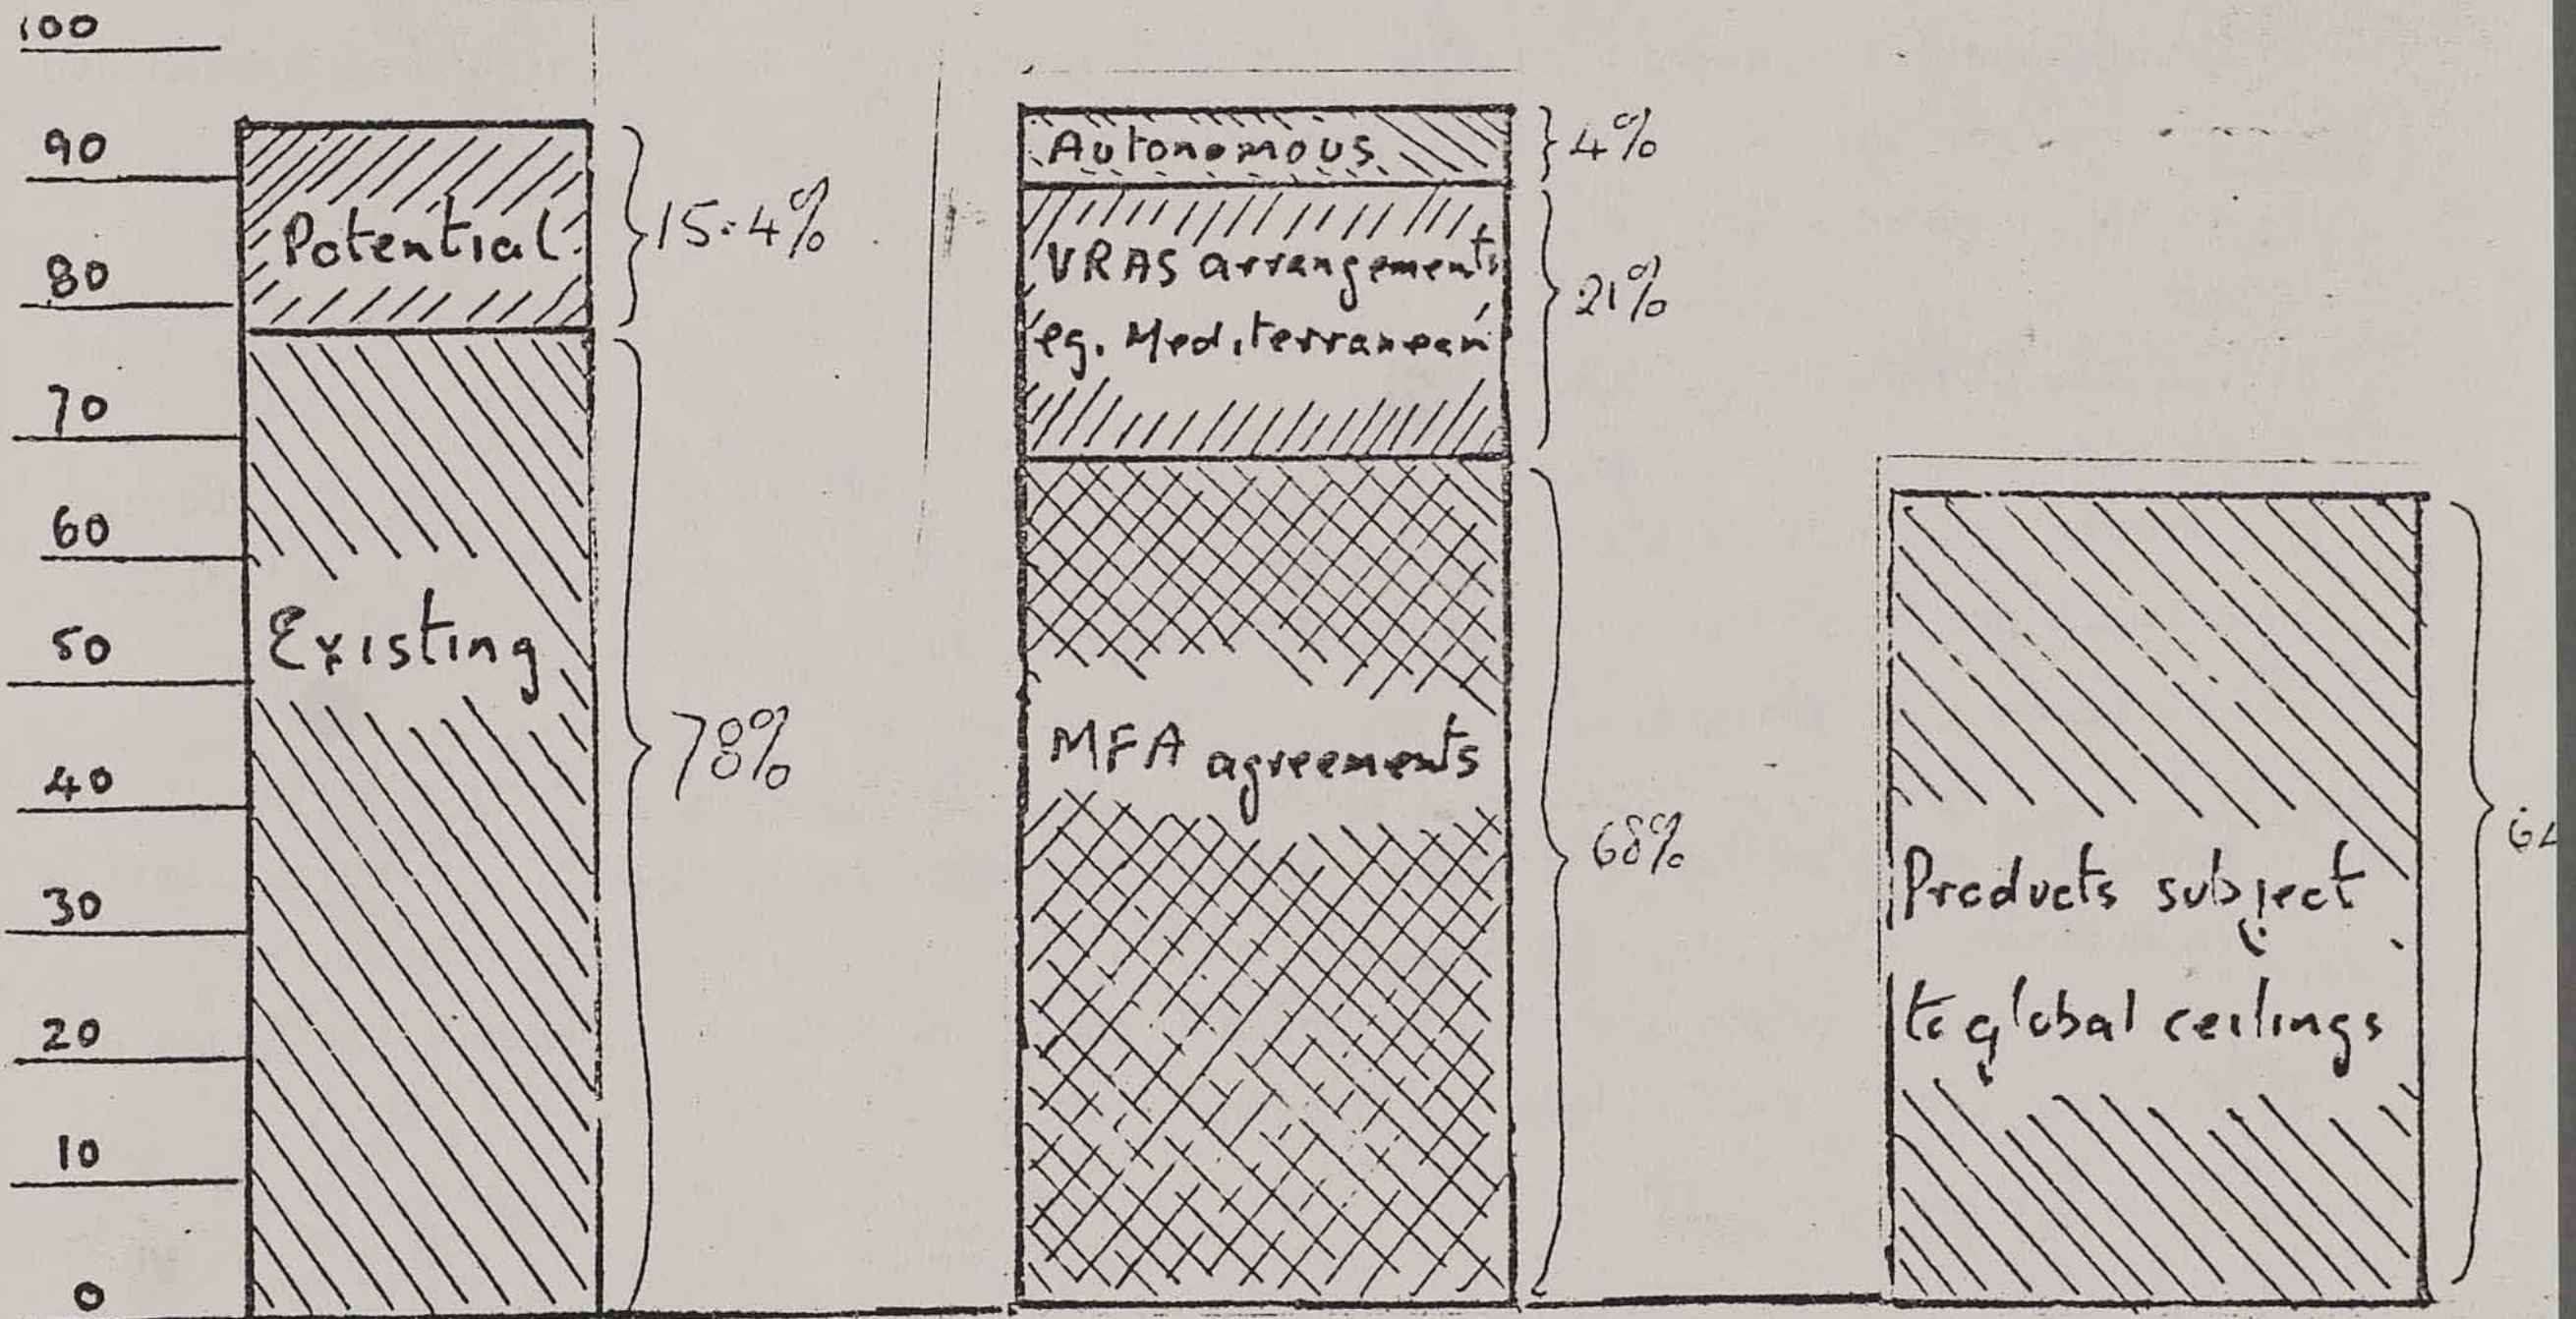 100
90
80
70
60
50
40
30
20
10
0
Potential
15.4%
Existing
78%
Autonomous
4%
VRAS arrangements
eg. Mediterranean
21%
MFA agreements
68%
Products subject
to global ceilings